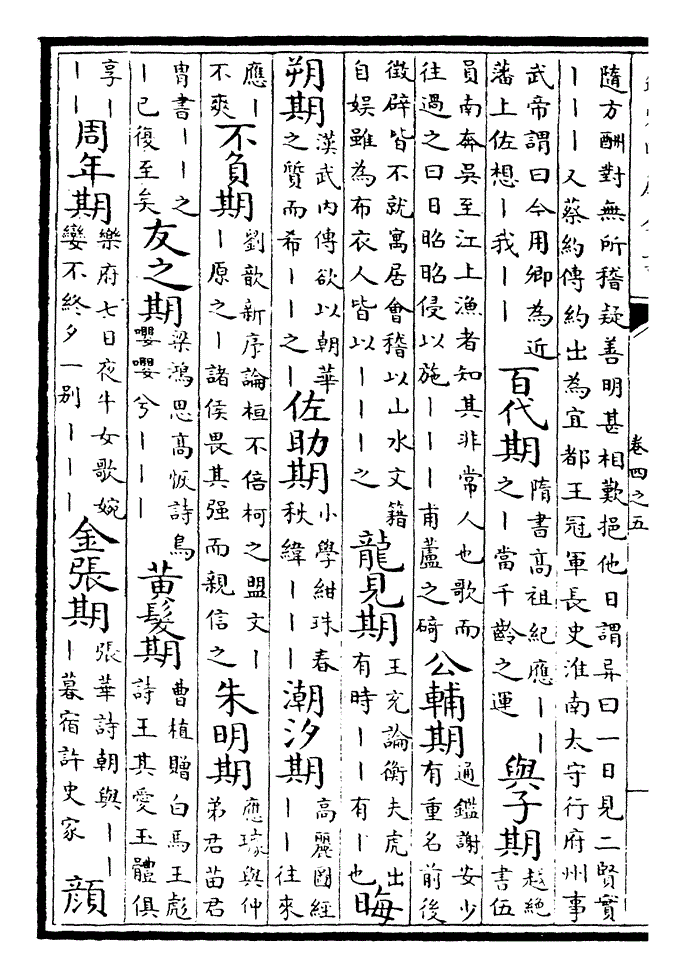 卷四之五
隨方酬對無所稽疑善明甚相歎挹他日謂异曰一日見二賢實
丨丨丨又蔡約傳約出為宜都王冠軍長史淮南太守行府州事
武帝謂曰今用卿為近
藩上佐想丨我丨丨
百代期
隋書高祖紀應丨丨
之丨當千齡之運
與子期
越絕
書伍
員南奔吳至江上漁者知其非常人也歌而
往過之曰日昭昭侵以施丨丨丨甫蘆之碕
公輔期
通鑑謝安少
有重名前後
徵辟皆不就寓居會稽以山水文籍
自娛雖為布衣人皆以丨丨丨之
龍見期
王充論衡夫虎出
有時丨丨有丨也
晦
朔期
漢武内傳欲以朝華
之質而希丨丨之丨
佐助期
小學紺珠春
秋緯丨丨丨
潮汐期
高麗圖經
丨丨往來
應丨
不爽
不負期
劉歆新序論桓不倍柯之盟文丨
丨原之丨諸侯畏其强而親信之
朱明期
應璩與仲
弟君苗君
胄書丨丨之
丨已復至矣
友之期
梁鴻思高恢詩鳥
嚶嚶兮丨丨丨
黄髮期
曹植贈白馬王彪
詩王其愛玉體俱
享丨
丨丨
周年期
樂府七日夜牛女歌婉
孌不終夕一别丨丨丨
金張期
張華詩朝與丨丨
丨暮宿許史家
顔